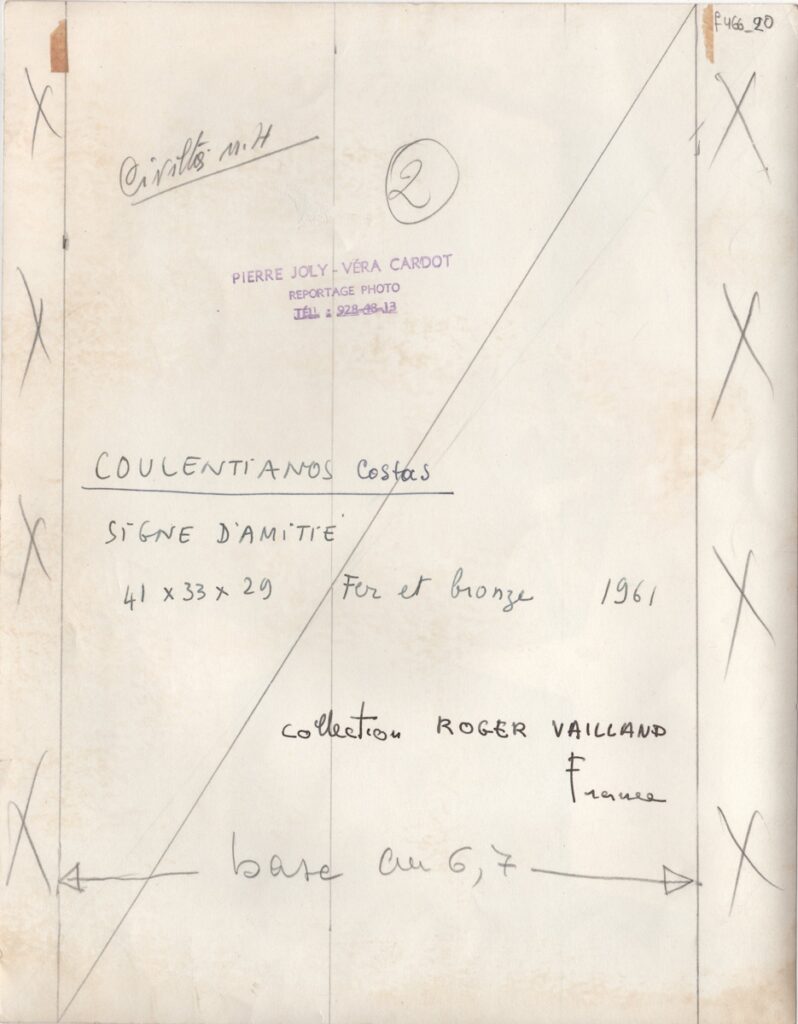 f466_20
Civiltà n. 4
2
PIERRE JOLY - VÉRA CARDOT
REPORTAGE PHOTO
TÉL. : 928-48-13
COULENTIANOS Costas
SIGNE D'AMITIÉ
41 x 33 x 29 Fer et bronze 1961
collection ROGER VAILLAND
France
base cm 6,7